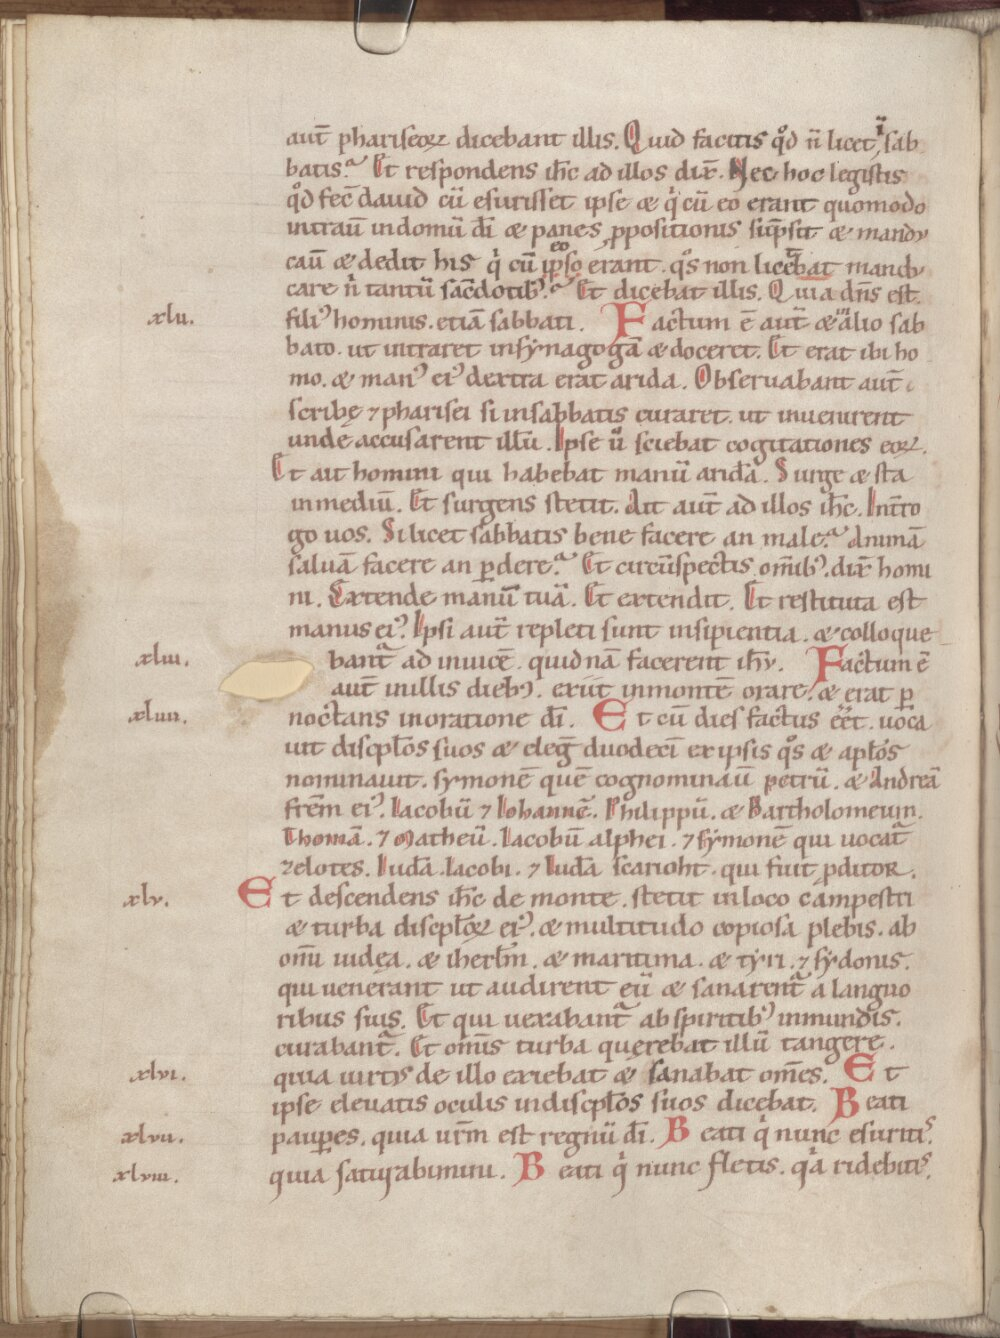 aut̄ phariseoꝝ dicebant illis. Quid facitis qͦd n̄ licet ī sab
batis? Et respondens ih̅c ad illos dix̄. Nec hoc legistis
qͦd fec̄ dauid cū esurisset ipse ⁊ qͥ cū eo erant quomodo
intrau̅ in domū dī ⁊ panes ꝓpositionis sūpsit ⁊ mandu
cau̅ ⁊ dedit his qͥ cū eo ipso erant. qͦs non licebat mandu
care nͥ tantū sac̄dotibꝰ? Et dicebat illis. Quia dn̄s est
xlii. filiꝰ hominis. etiā sabbati. Factum ē aut̄ ⁊ in alio sab
bato. ut intraret in sẏnagogā ⁊ doceret. Et erat ibi ho
mo. ⁊ manꝰ eiꝰ dextra erat arida. Obseruabant aut̄
scribę ⁊ pharisei si in sabbatis curaret. ut inuenirent
unde accusarent illū. Ipse uͦ sciebat cogitationes eoꝝ.
Et ait homini qui habebat manū aridā. Surge ⁊ sta
in mediū. Et surgens stetit. Ait aut̄ ad illos ih̅c. Int̄ro
go uos. Si licet sabbatis bene facere an male? Animā
saluā facere an ꝑdere? Et circūspectis omībꝰ. dix̄ homi
ni. Extende manū tuā. Et extendit. Et restituta est
manus eiꝰ. Ipsi aut̄ repleti sunt insipientia. ⁊ colloque
xliii. bant᷑ ad inuicē. quidnā facerent ih̅u. Factum ē
aut̄ in illis diebꝰ. exiit in montē orare. ⁊ erat ꝑ
xliiii. noctans in oratione dī. Et cū dies factus eēt. uoca
uit discpl̄os suos ⁊ eleḡ duodecī ex ipsis qͦs ⁊ apl̄os
nominauit. symonē quē cognominau̅ petrū. ⁊ Andreā
fr̄em eiꝰ. Iacobū ⁊ Iohannē. Philippū. ⁊ Bartholomeum.
Thomā. ⁊ Matheū. Iacobū alphei. ⁊ sẏmonē qui uocat᷑
zelotes. Iudā Iacobi. ⁊ Iudā scarioht. qui fuit ꝓditor.
xlv. Et descendens ih̅c de monte. stetit in loco campestri
⁊ turba discpl̄oꝝ eiꝰ. ⁊ multitudo copiosa plebis. ab
om̄i iudęa. ⁊ iherl̄m. ⁊ maritima. ⁊ tẏri. ⁊ sẏdonis.
qui uenerant ut audirent eū ⁊ sanarent᷑ a languo
ribus suis. Et qui uexabant᷑ ab spiritibꝰ inmundis.
curabant᷑. Et om̄is turba querebat illū tangere.
xlvi. quia uirtꝰ de illo exiebat ⁊ sanabat om̄es. Et
ipse eleuatis oculis in discpl̄os suos dicebat. Beati
xlvii. pauꝑes. quia ur̄m est regnū dī. Beati qͥ nunc esuritis.
xlviii. quia saturabimini. Beati qͥ nunc fletis. qͣa ridebitis.